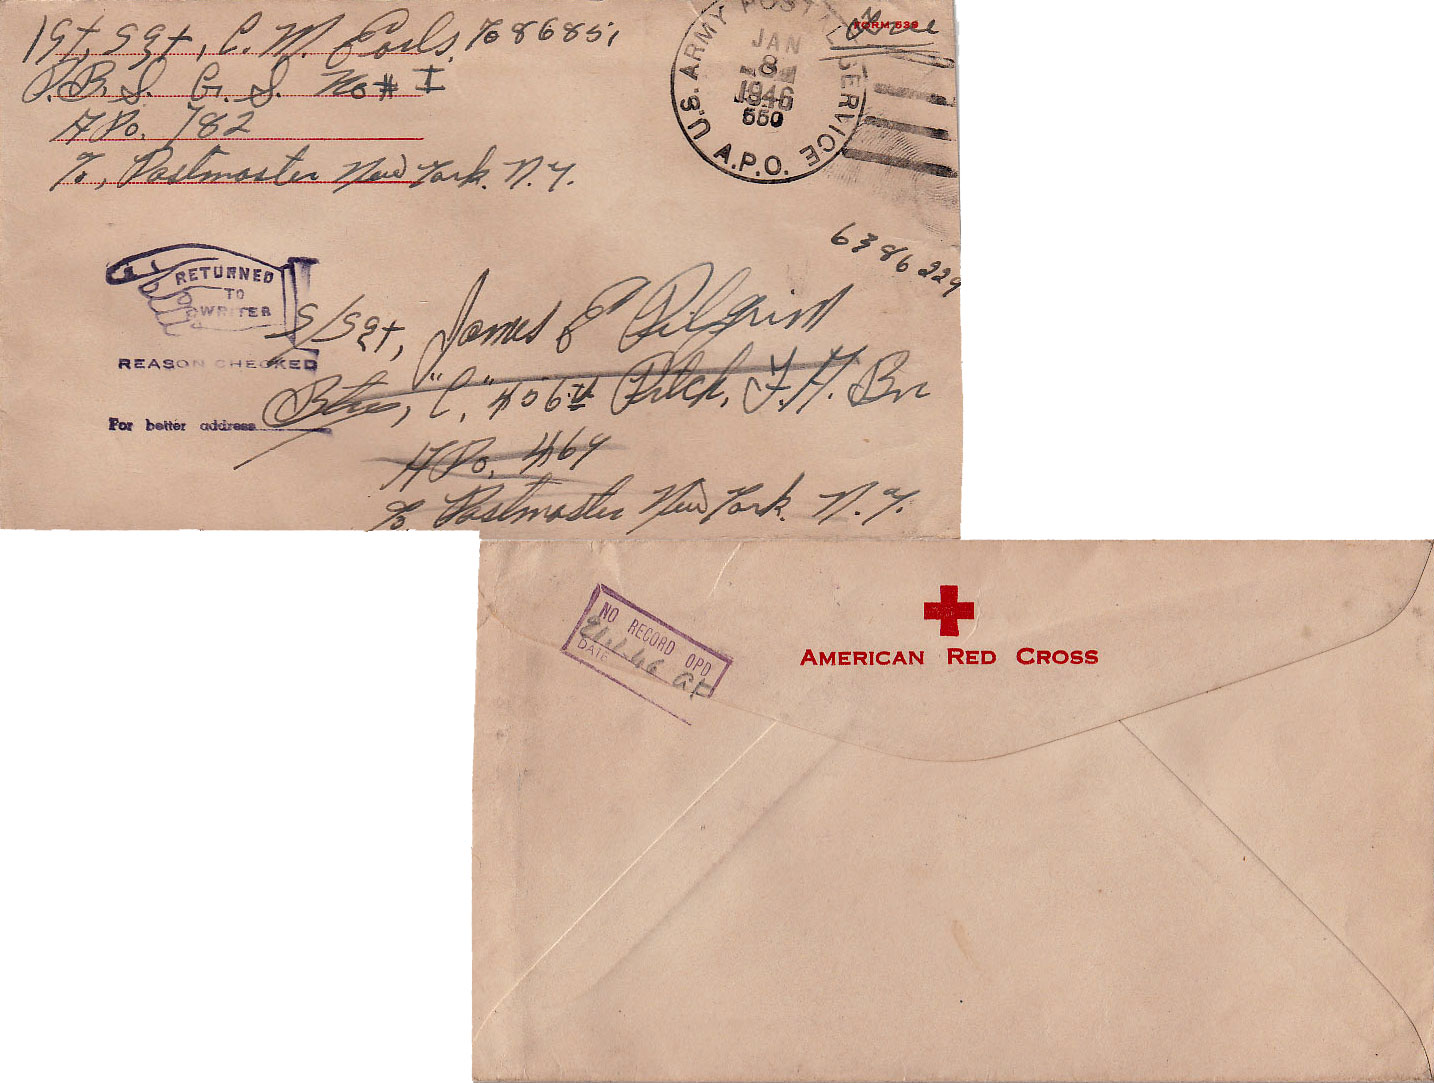 1st, Sgt, C. M. Earls, 7086851
P.B.S. G.S. No # I
A Po. 782
%, Postmaster New York. N.Y.
U.S. ARMY POSTAL SERVICE
A.P.O.
JAN
8
1946
550
FORM 539
Free
6386229
RETURNED
TO
WRITER
REASON CHECKED
For better address
S/Sgt, James E Pilgrim
"C," 406th F.A. Bn
A Po, 469
% Postmaster New York. N.Y.
NO RECORD OPD
DATE
AMERICAN RED CROSS